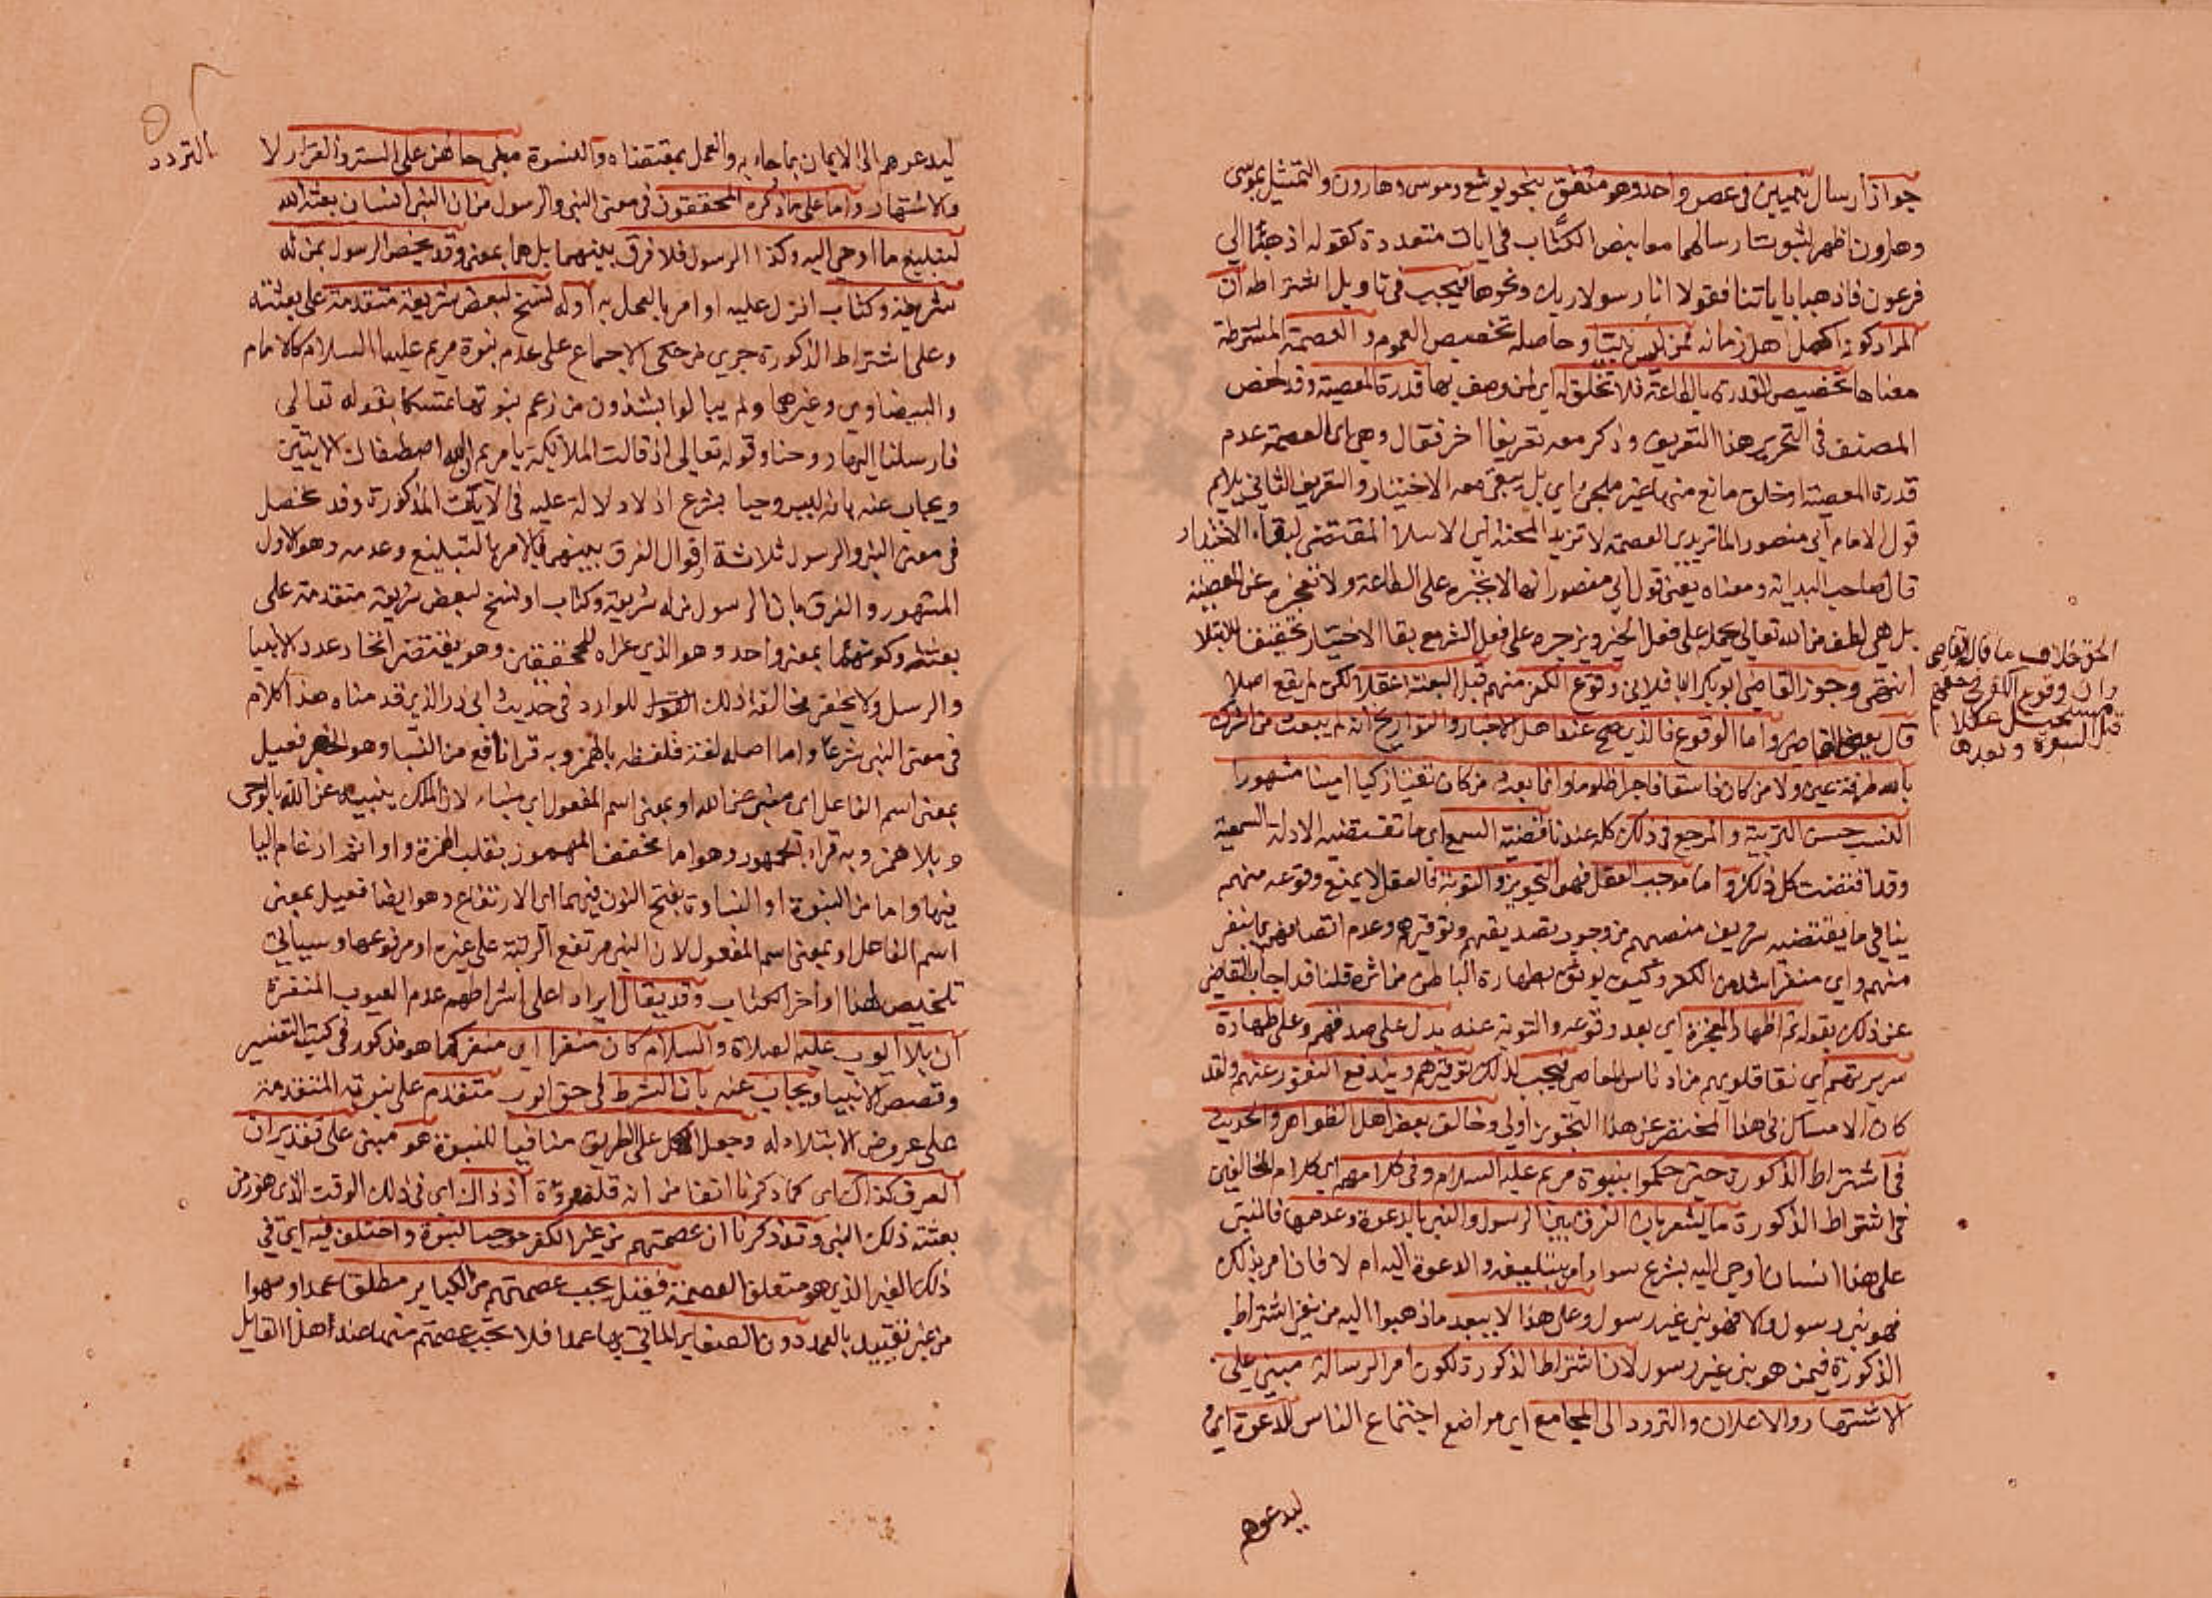 جواز ارسال نبيين في عصر واحد وهو متفق بنحو يوشع وموسى وهارون والتمثيل بموسى
وهارون اظهر لثبوت ارسالهما معا بنص الكتاب في ايات متعددة كقوله اذهبا الي
فرعون فاذهبا باياتنا فقولا انا رسولا ربك ونحوها فيجب في تاويل اشتراطه ان
المراد كونه اكمل اهل زمانه ممن ليس نبيا وحاصله تخصيص العموم والعصمة المشترطة
معناها تخصيص القدرة بالطاعة فلا تخلق له اي لمن وصف بها قدرة المعصية وقد لخص
المصنف في التحرير هذا التعريف وذكر معه تعريفا اخر فقال وهي اي العصمة عدم
قدرة المعصية او خلق مانع منها غير ملجئ اي بل يبقى معه الاختيار والتعريف الثاني يلايم
قول الامام ابي منصور الماتريدي العصمة لا تزيد المحنة اي الابتلاء المقتضي لبقاء الاختيار
قال صاحب البداية ومعناه يعني قول ابي منصور انها لا تجبره على الطاعة ولا تعجزه عن المعصية
بل هي لطف من الله تعالى يحمله على فعل الخير ويزجره على فعل الشر مع بقا الاختيار تحقيقا للابتلا
انتهى وجوز القاضي ابو بكر الباقلاني وقوع الكفر منهم قبل البعثة عقلا لكن لم يقع اصلا
قال يعني القاضي واما الوقوع فالذي صح عند اهل الاخبار والتواريخ انه لم يبعث من اشرك
بالله طرفة عين ولا من كان فاسقا فاجرا ظلوما وانما بعث من كان تقيا زكيا امينا مشهور
النسب حسن التربية والمرجع في ذلك كله عندنا قضية السمع اي ما تقتضيه الادلة السمعية
وقد اقتضت كل ذلك واما موجب العقل فهو التجويز والتوبة فالعقل لا يمنع وقوعه منهم
ينافي ما يقتضيه شريف منصبهم من وجوب تصديقهم وتوقيرهم وعدم اتصافهم بما ينفر
منهم واي منفر اشد من الكفر وكيف يوثق بطهارة الباطن من اثره قلنا قد اجاب القاضي
عن ذلك بقوله ثم اظهار المعجزة اي بعد وقوعه والتوبة عنه يدل على صدقهم وعلى طهارة
سريرتهم اي نقا قلوبهم من ادناس المعاصي فيجب لذلك توقيرهم ويندفع النفور عنهم ولقد
كان الامساك في هذا المختصر عن هذا التجويز اولي وخالف بعض اهل الظواهر والحديث
في اشتراط الذكورة حتى حكموا بنبوة مريم عليه السلام وفي كلامهم اي كلام المخالفين
في اشتراط الذكورة ما يشعر بان الفرق بين الرسول والنبي بالدعوة وعدمها فالنبي
على هذا انسان اوحي اليه بشرع سواء امر بتبليغه والدعوة اليه ام لا فان امر بذلك
فهو نبي رسول والا فهو نبي غير رسول وعلى هذا لا يبعد ما ذهبوا اليه من نفي اشتراط
الذكورة فيمن هو نبي غير رسول لان اشتراط الذكورة لكون امر الرسالة مبني على
الاشتهار والاعلان والتردد الى المجامع اي مواضع اجتماع الناس للدعوة اي
ليدعوهم
الحق خلاف ما قاله القاضي
وان وقوع الكفر في حقهم
مستحيل عقلا
قبل النبوة وبعدها
ليدعوهم الى الايمان بما جاء به والعمل بمقتضاه والنسوة مبنى حالهن على الستر والقرار لا
التردد
والاشتهار واما على ما ذكره المحققون في معنى النبي والرسول من ان النبي انسان بعثه الله
لتبليغ ما اوحي اليه وكذا الرسول فلا فرق بينهما بل هما بمعنى وقد يخص الرسول بمن له
شريعة وكتاب انزل عليه او امر بالعمل به او له نسخ لبعض شريعة متقدمة على بعثته
وعلى اشتراط الذكورة جرى من حكى الاجماع على عدم نبوة مريم عليها السلام كالامام
والبيضاوي وغيرهما ولم يبالوا بشذوذ من زعم نبوتها تمسكا بقوله تعالى
فارسلنا اليها روحنا وقوله تعالى اذ قالت الملايكة يا مريم ان الله اصطفاك الايتين
ويجاب عنه بانه ليس وحيا بشرع اذ لا دلالة عليه في الايات المذكورة وقد تحصل
في معنى النبي والرسول ثلاثة اقوال الفرق بينهما بالامر بالتبليغ وعدمه وهو الاول
المشهور والفرق بان الرسول من له شريعة وكتاب او نسخ لبعض شريعة متقدمة على
بعثته وكونهما بمعنى واحد وهو الذي عزاه للمحققين وهو يقتضي اتحاد عدد الانبيا
والرسل ولا يخفى مخالفة ذلك للوارد في حديث ابي ذر الذي قدمناه هذا كلام
في معنى النبي شرعا واما اصله لغة فلفظه بالهمز وبه قرا نافع من النبا وهو الخبر فعيل
بمعنى اسم الفاعل اي منبئ عن الله او بمعنى اسم المفعول اي منبأ لان الملك ينبيه عن الله بالوحي
وبلا همز وبه قراء الجمهور وهو اما مخفف المهموز بقلب الهمزة واوا ثم ادغام اليا
فيها واما من النبوة او النباوة بفتح النون فيهما اي الارتفاع وهو ايضا فعيل بمعنى
اسم الفاعل او بمعنى اسم المفعول لان النبي مرتفع الرتبة على غيره او مرفوعها وسياتي
تلخيص لهذا اواخر الكتاب وقد يقال ايرادا على اشتراطهم عدم العيوب المنفرة
ان بلا ايوب عليه الصلاة والسلام كان منفرا اي منفر كما هو مذكور في كتب التفسير
وقصص الانبيا ويجاب عنه بان الشرط في حق ايوب متقدم على نبوته المتقدمة
على عروض الابتلاء له وجعل الاكل على الطريق منافيا للنبوة هو مبني على تقدير ان
العرف كذاك اي كما ذكرنا انفا من انه قلة مروة اذ ذاك اي في ذلك الوقت الذي هو زمن
بعثته ذلك النبي وقد ذكرنا ان عصمتهم من غير الكفر موجب النبوة واختلف فيه اي في
ذلك الغير الذي هو متعلق العصمة فقيل يجب عصمتهم من الكباير مطلقا عمدا وسهوا
من غير تقييد بالعمد دون الصغاير الماتي بها عمدا فلا تجب عصمتهم منها عند اهل هذا القايل